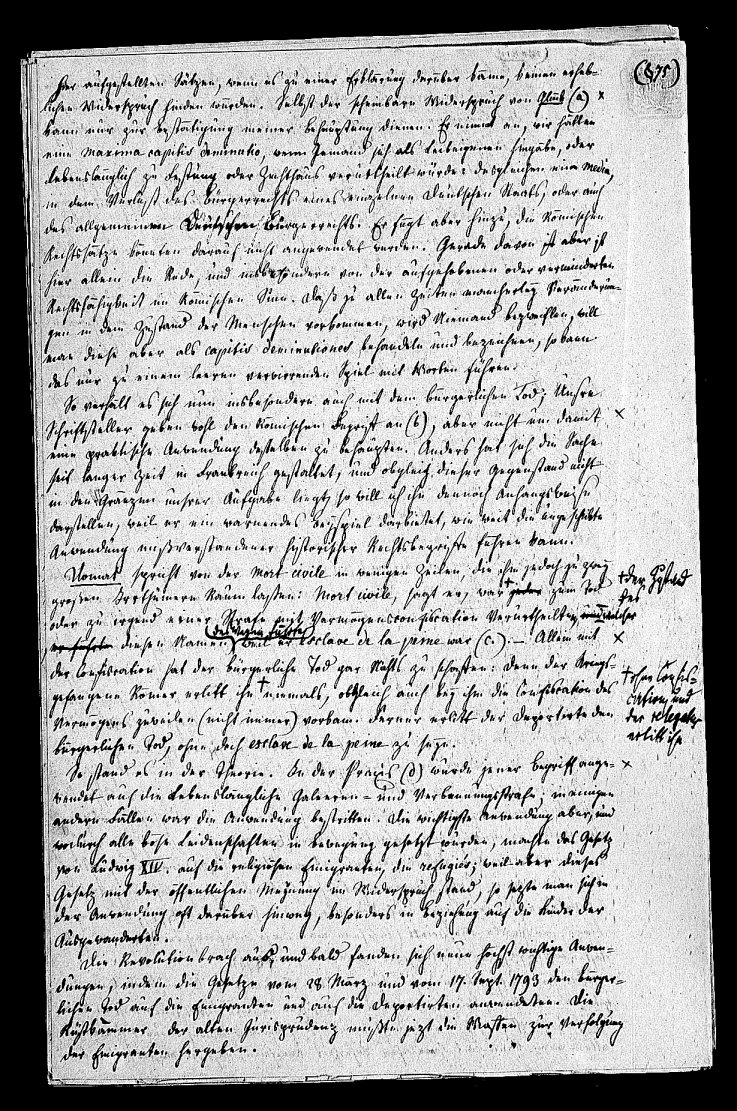 (§75)
hier aufgestellten Sätzen, wenn es zu einer Erklärung darüber käme, keinen erheb-
lichen Widerspruch finden würden. Selbst der scheinbare Widerspruch von Glück (a) ×
kann nur zur Bestätigung meiner Behauptung dienen. Er nimmt an, wir hätten
eine maxima capitis deminutio, wenn Jemand sich als Leibeigenen hingäbe, oder
lebenslänglich zu Festung oder Zuchthaus verurtheilt würde: desgleichen eine media,
in dem Verlust des Bürgerrechts eines einzelnen Deutschen Staats, oder auch
des allgemeinen Deutschen Bürgerrechts. Er fügt aber hinzu, die Römischen
Rechtssätze könnten darauf nicht angewendet werden. Gerade davon ist aber ist
hier allein die Rede, und insbesondere von der aufgehobenen oder verminderten
Rechtsfähigkeit im Römischen Sinn. Daß zu allen Zeiten mancherley Veränderun-
gen in dem Zustand der Menschen vorkommen, wird Niemand bezweifeln, will
man diese aber als capitis deminutiones behandeln und bezeichnen, so kann
das nur zu einem leeren verwirrenden Spiel mit Worten führen.
So verhält es sich nun insbesondere auch mit dem bürgerlichen Tod. Unsre
Schriftsteller geben wohl den Römischen Begriff an (b), aber nicht um damit ×
eine praktische Anwendung desselben zu behaupten. Anders hat sich die Sache
seit langer Zeit in Frankreich gestaltet, und obgleich dieser Gegenstand nicht
in den Gränzen unsrer Aufgabe liegt, so will ich ihn dennoch anhangsweise
darstellen, weil er ein warnendes Beyspiel darbietet, wie weit die ungeschickte
Anwendung mißverstandener historischer Rechtsbegriffe führen kann.
Domat spricht von der mort civile in wenigen Zeilen, die ihm jedoch zu zwey
großen Irrthümern Raum lassen: Mort civile, sagt er, war + zum Tod + der Zustand des
oder zu irgend einer Strafe mit Vermögensconfiscation Verurtheilten, welcher
diesen Namen deswegen führte weil er esclave de la peine war (c). — Allein mit ×
der Confiscation hat der bürgerliche Tod gar Nichts zu schaffen: denn der kriegs-
gefangene Römer erlitt ihn + niemals, obgleich auch bey ihm die Confiscation des + ohne Confis-
cation, und
der relegatus
erlitt ihn
Vermögens zuweilen (nicht immer) vorkam. Ferner erlitt der Deportirte den
bürgerlichen Tod, ohne doch esclave de la peine zu seyn.
So stand es in der Theorie. In der Praxis (d) wurde jener Begriff ange- ×
wendet auf die lebenslängliche Galeeren- und Verbannungsstrafe; in einigen
andern Fällen war die Anwendung bestritten. Die wichtigste Anwendung aber, und
wodurch alle böse Leidenschaften in Bewegung gesetzt wurden, machte das Gesetz
von Ludwig XIV. auf die religiösen Emigranten, die refugiés; weil aber dieses
Gesetz mit der öffentlichen Meynung im Widerspruch stand, so setzte man sich in
der Anwendung oft darüber hinweg, besonders in Beziehung auf die Kinder der
Ausgewanderten.
Die Revolution brach aus, und bald fanden sich neue höchst wichtige Anwen-
dungen, indem die Gesetze vom 28 März und vom 17. Sept. 1793 den bürger-
lichen Tod auf die Emigranten und auch die Deportirten anwendeten. Die
Rüstkammer der alten Jurisprudenz mußte jetzt die Waffen zur Verfolgung
der Emigranten hergeben.